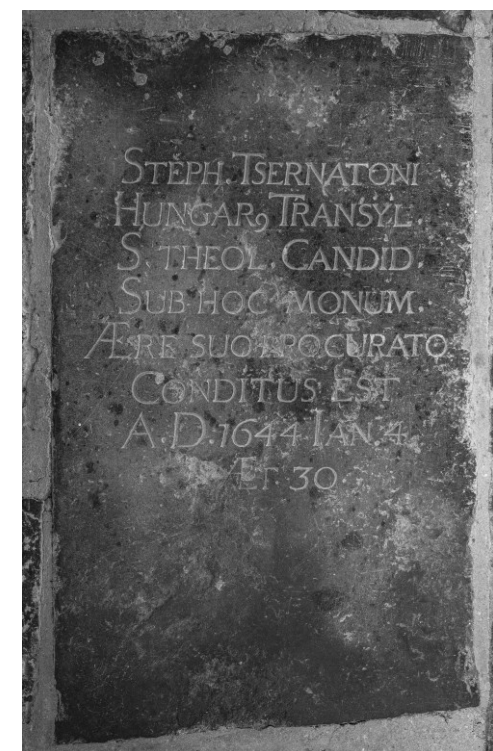 STEPH. TSERNATONI
HUNGARꝰ TRANSYL.
S. THEOL. CANDID.
SUB HOC MONUM.
ÆRE SUO PROCURATO
CONDITUS EST
A. D. 1644 IAN. 4.
ÆT 30